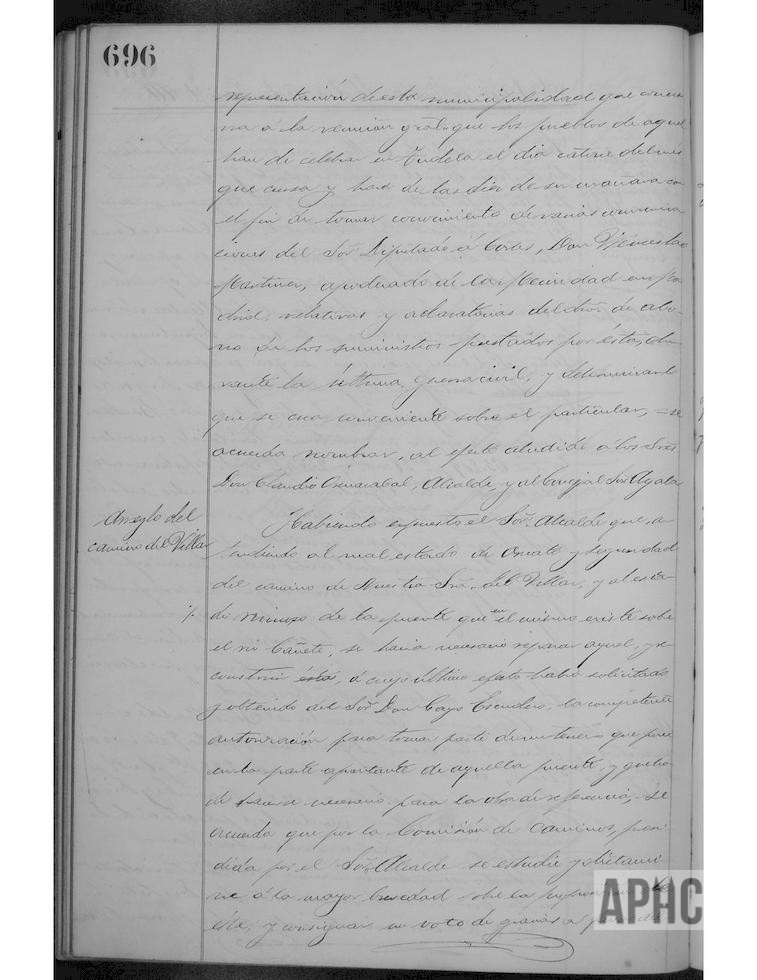 696
representación de esta municipalidad que concu-
rra á la reunión gral. que los pueblos de aquel
han de celebrar en Tudela el dia catorce del mes
que cursa y hora de las diez de su mañana con
el fin de tomar conocimiento de varias comunica
ciones del Sor. Diputado á Cortes, Don Wenceslao
Martinez, apoderado de la Mancomunidad en Ma
drid, relativas y aclaratorias del dro. de abo-
no de los suministros prestados por ésta, du-
rante la última guerra civil, y determinar lo
que se crea conveniente sobre el particular, = se
acuerda nombrar, al efecto aludido a los Sres.
Don Claudio Alcalde, y al Concejal Sor. Ayala
Arreglo del
camino del Villar
Habiendo expuesto el Sor. Alcalde que, a-
tendiendo al mal estado de ornato y seguridad
del camino de Nuestra Sra. del Villar, y al esta-
do ruinoso de la puente que en el mismo existe sobre
el rio Cañete, se hacia necesario reparar aquel, y re
construir ésta, á cuyo último efecto habia solicitado
y obtenido del Sor. Don Cayo Escudero, la competente
autorización para tomar parte de un terreno que
en la parte de aquella puente, y que ha
de hacerse necesario para la obra de referencia, = se
acuerda que por la Comisión de Caminos, presi-
dida por el Sor. Alcalde se estudie y dictami-
ne á la mayor brevedad sobre la
éste, y consignar un voto de gracias a
APHC